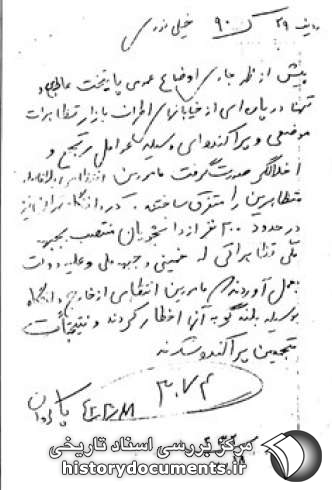 ردیف ۲۹ ک ۹۰ خیلی فوری
پیش از ظهر جاری اوضاع عمومی پایتخت عادی و
تنها در پاره‌ای از خیابانهای اطراف بازار تظاهرات
موضعی و پراکنده‌ای بوسیله عوامل مرتجع و
اخلالگر صورت گرفت مامورین انتظامی بلافاصله
متظاهرین را متفرق ساختند. در دانشگاه تهران نیز
در حدود ۲۰۰ نفر از دانشجویان منتصب بجبهه
ملی تظاهراتی له خمینی و جبهه ملی و علیه دولت
بعمل آوردند مامورین انتظامی از خارج دانشگاه
بوسیله بلندگو به آنها اخطار کردند و نتیجتاً
متجمعین پراکنده شدند
۳۰۷۴
پاکروان
مرکز بررسی اسناد تاریخی
historydocuments.ir